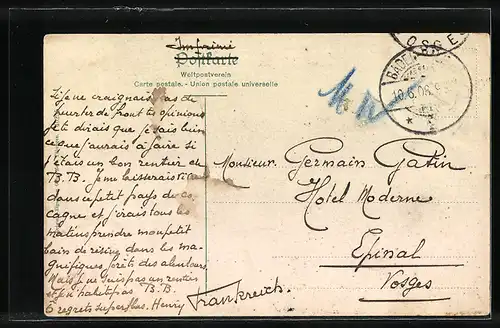 Imprimé
Postkarte
Weltpostverein
Carte postale. - Union postale universelle
OSGE
BADEN
10.6.06.
Si je ne craignais pas de
heurter de front tes opinions
je te dirais que je sais bien
ce que j'aurais à faire si
j'étais un bon rentier et
B.B. Je me laisserais
dans ce petit pays de co-
cagne et j'irais tous les
matins prendre mon petit
bain de résine dans les ma-
gnifiques forêts des alentours
Mais je ne suis pas un rentier
et je n'habite pas B.B.
O regrets superflus. Henry
Monsieur Germain Gatin
Hôtel Moderne
Epinal
Vosges
Frankreich.